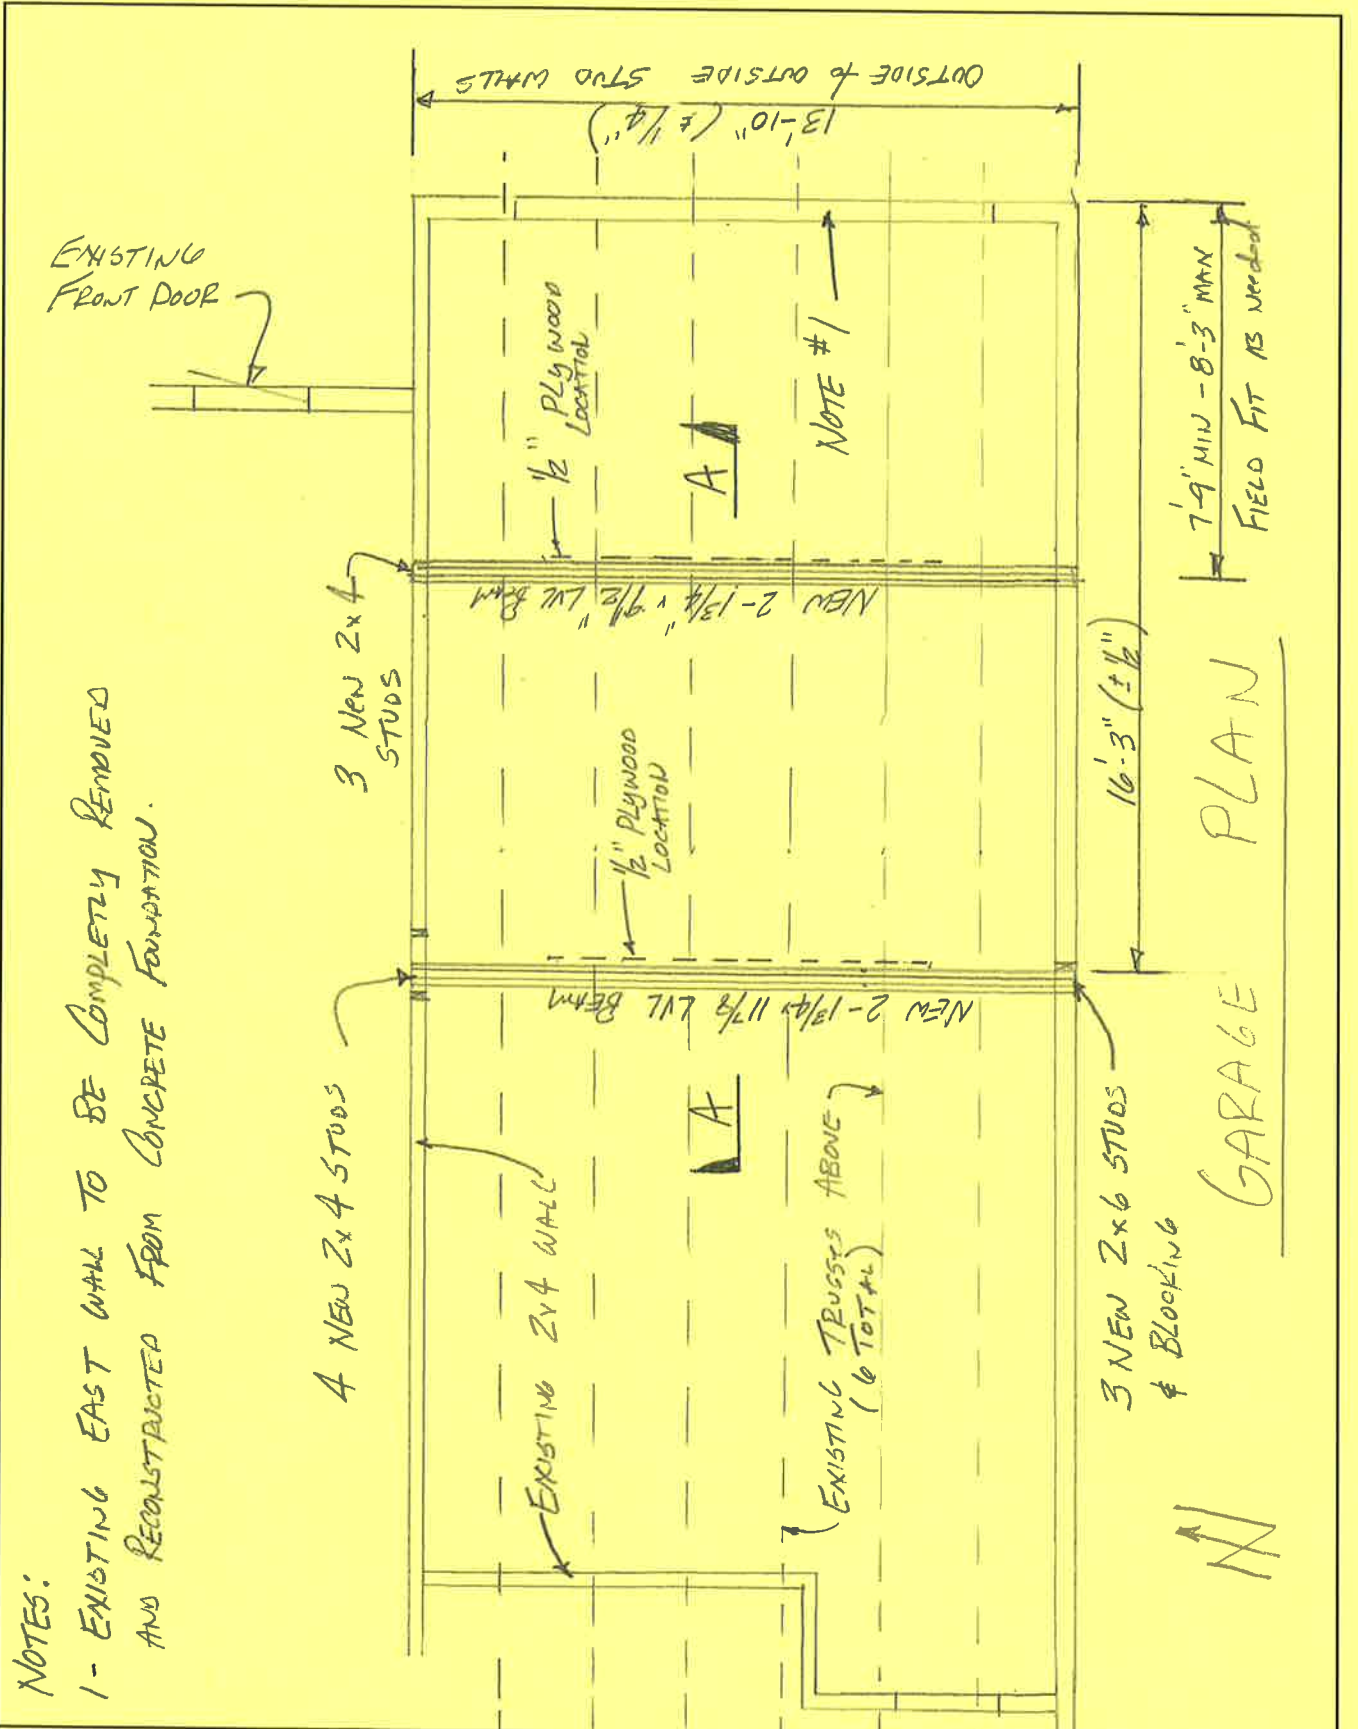 NOTES:
1- EXISTING EAST WALL TO BE COMPLETLY REMOVED
AND RECONSTRUCTED FROM CONCRETE FOUNDATION.
EXISTING
FRONT DOOR
4 NEW 2x4 STUDS
3 NEW 2x4
STUDS
EXISTING 2x4 WALL
NEW 2-1 3/4 x 11 7/8 LVL BEAM
1/2" PLYWOOD
LOCATION
NEW 2-1 3/4" x 9 1/2" LVL BEAM
1/2" PLYWOOD
LOCATION
A
A
EXISTING TRUSSES ABOVE
(6 TOTAL)
NOTE #1
OUTSIDE to OUTSIDE STUD WALLS
13'-10" (± 1/4")
3 NEW 2x6 STUDS
& BLOCKING
16'-3" (± 1/2")
7'-9" MIN - 8'-3" MAX
FIELD FIT AS Needed
GARAGE PLAN
N